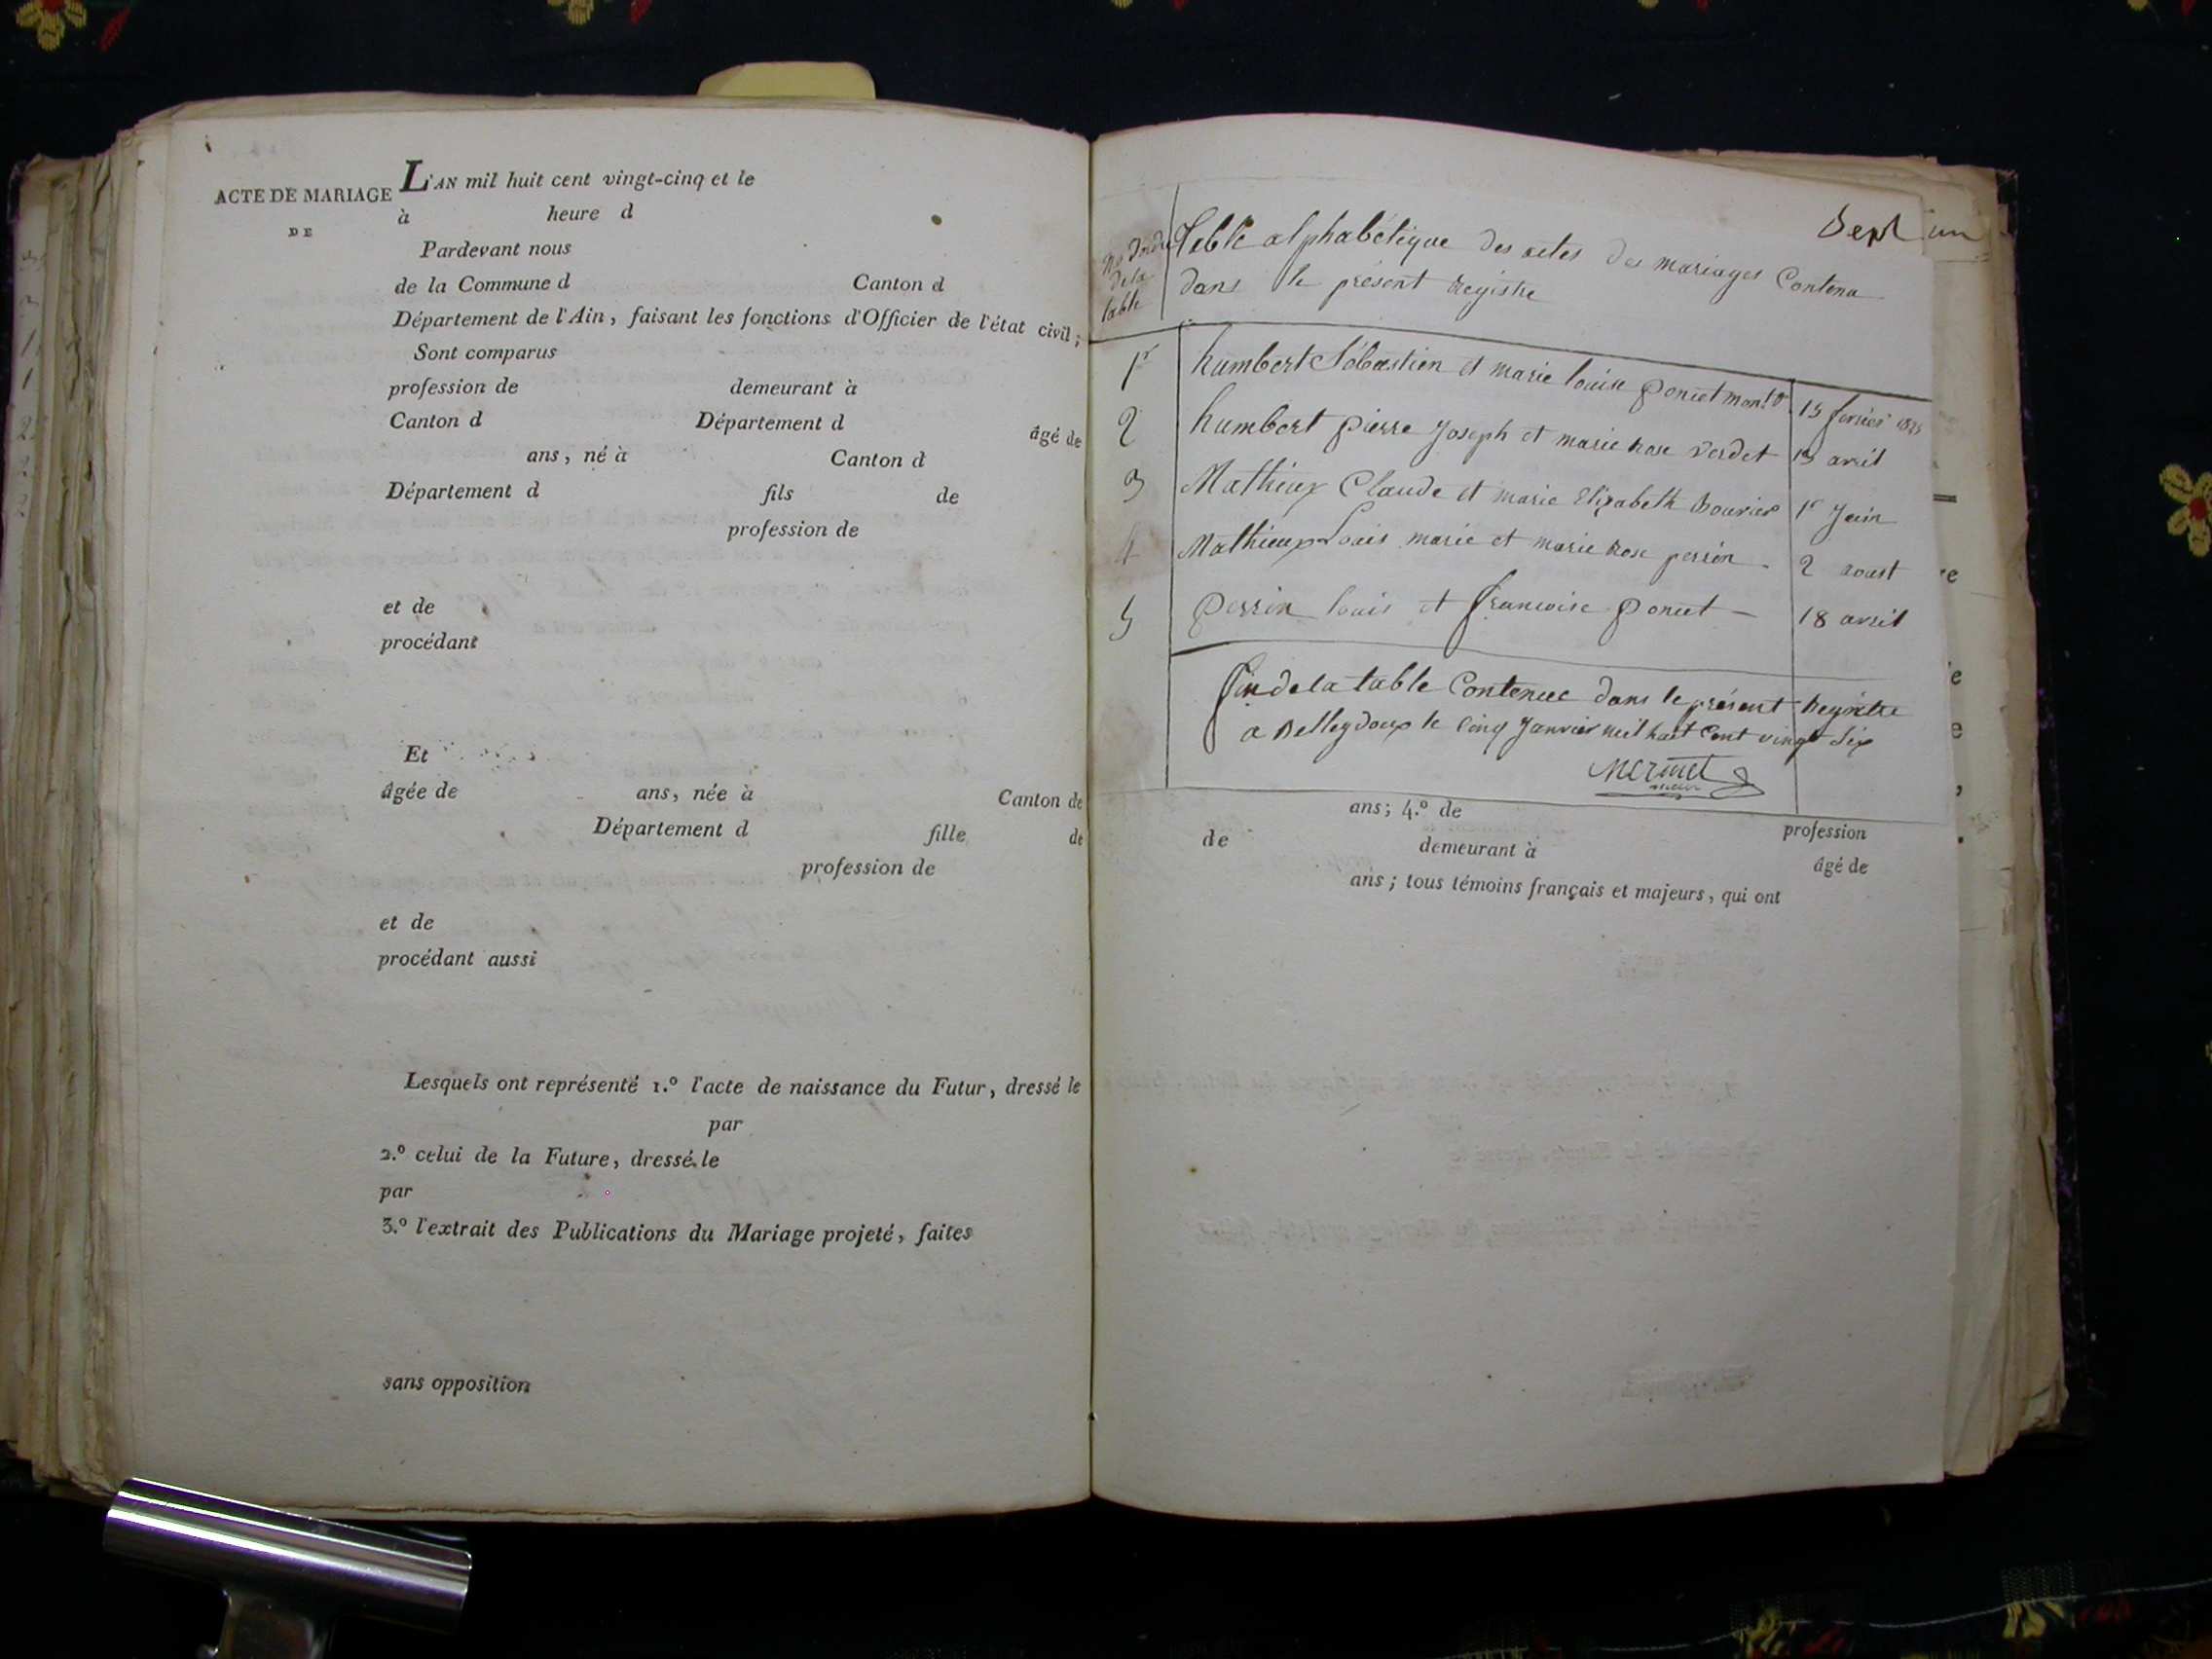 L'AN mil huit cent vingt-cinq et le
ACTE DE MARIAGE
DE
à heure d
Pardevant nous
de la Commune d Canton d
Département de l'Ain, faisant les fonctions d'Officier de l'état civil;
Sont comparus
profession de demeurant à
Canton d Département d âgé de
ans, né à Canton d
Département d fils de
profession de
et de
procédant
Et
âgée de ans, née à Canton de
Département d fille de
profession de
et de
procédant aussi
Lesquels ont représenté 1.º l'acte de naissance du Futur, dressé le
par
2.º celui de la Future, dressé le
par
3.º l'extrait des Publications du Mariage projeté, faites
sans opposition
Sept un
de la
table
Table alphabétique des actes des mariages Contenu
dans le présent Registre
1r humbert Sébastien et marie louise poncet 15 fevrier 1825
2 humbert pierre Joseph et marie Rose verdet 13 avril
3 Mathieux Claude et marie Elizabeth Bouvier 1r Juin
4 Mathieux Louis marie et marie Rose perrin 2 aoust
5 Perrin louis et francoise poncet — 18 avril
fin de la table Contenue dans le présent Registre
a Belleydoux le Cinq Janvier mil huit Cent vingt Six
Mermet
maire
ans; 4.º de profession
de demeurant à âgé de
ans; tous témoins français et majeurs, qui ont